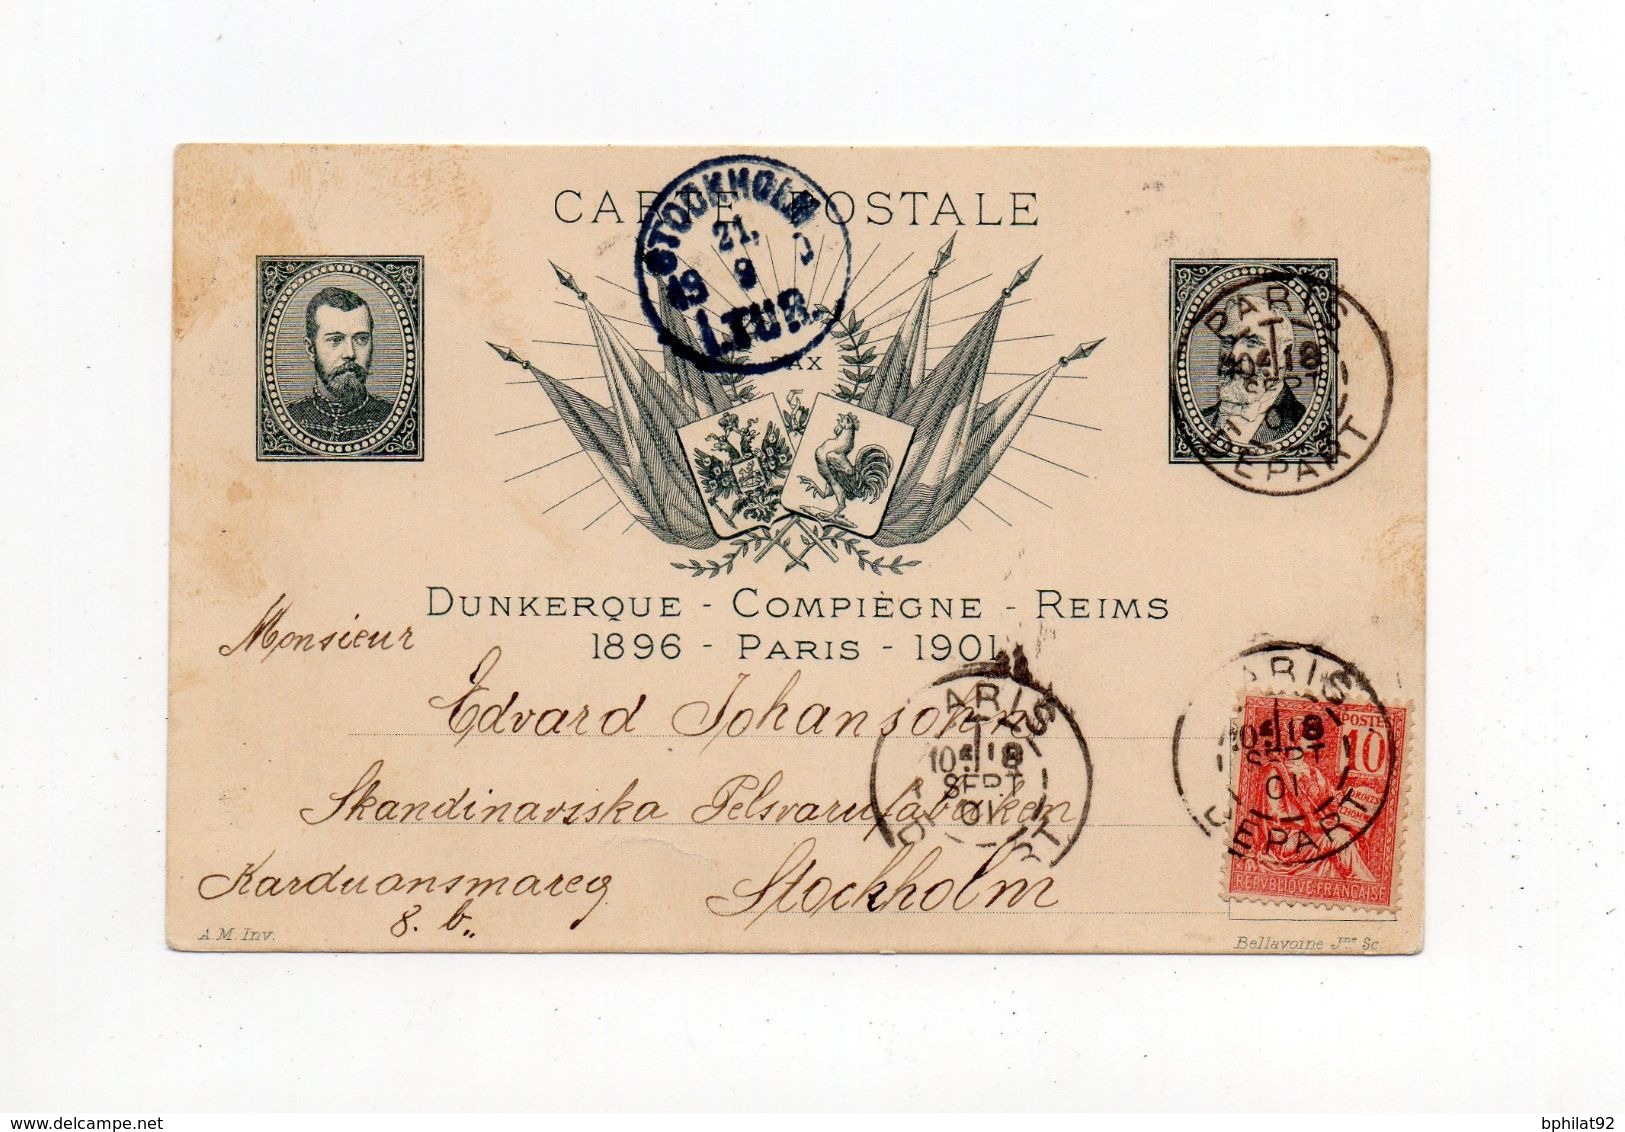 CARTE POSTALE
STOCKHOLM
21.
19 9 0
1.TUR.
PAX
PARIS
10 18
SEPT
01
DEPART
DUNKERQUE - COMPIÈGNE - REIMS
1896 - PARIS - 1901
Monsieur
Edvard Johanson
Skandinaviska Pelsvarufabriken
Karduansmareg
8. b.
Stockholm
PARIS
10 18
SEPT
01
DEPART
PARIS
10 18
SEPT
01
DEPART
POSTES
10
REPVBLIQVE FRANÇAISE
A. M. Inv.
Bellavoine Jne Sc.
www.delcampe.net
bphilat92